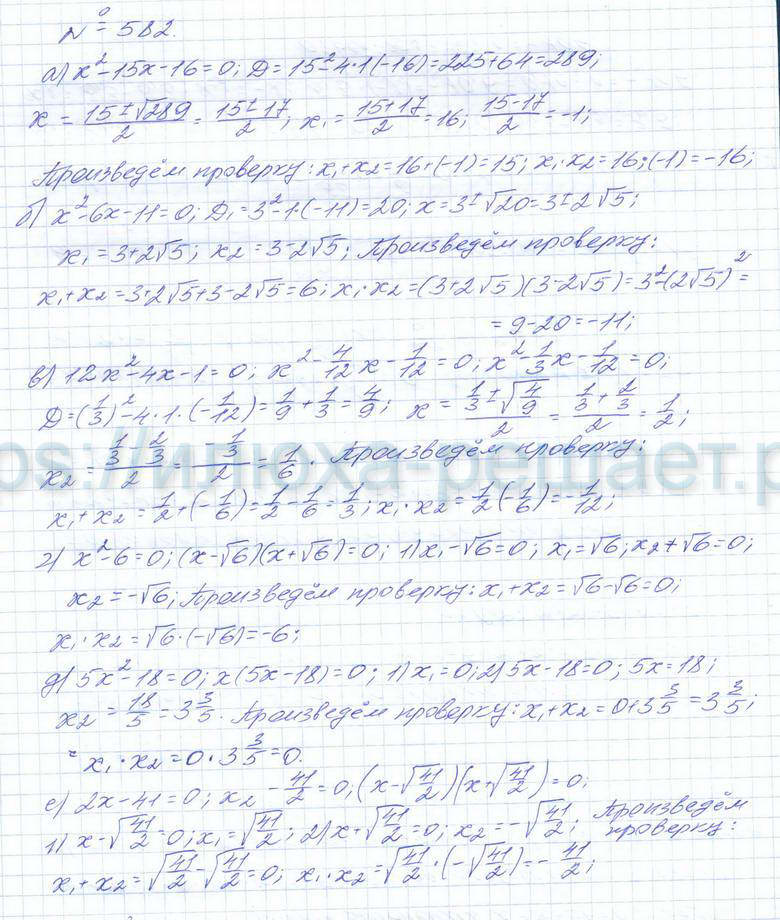 № 582.
а) x²-15x-16=0; D=15²-4·1(-16)=225+64=289;
x = (15±√289)/2 = (15±17)/2; x₁ = (15+17)/2 = 16; (15-17)/2 = -1;
Произведём проверку: x₁+x₂=16+(-1)=15; x₁·x₂=16·(-1)=-16;
б) x²-6x-11=0; D₁=3²-1·(-11)=20; x=3±√20=3±2√5;
x₁=3+2√5; x₂=3-2√5; Произведём проверку:
x₁+x₂=3+2√5+3-2√5=6; x₁·x₂=(3+2√5)(3-2√5)=3²-(2√5)²=
=9-20=-11;
в) 12x²-4x-1=0; x²-4/12x-1/12=0; x²-1/3x-1/12=0;
D=(1/3)²-4·1·(-1/12)=1/9+1/3=4/9; x=(1/3±√4/9)/2=(1/3+2/3)/2=1/2;
x₂=(1/3-2/3)/2=(-1/3)/2=1/6. Произведём проверку:
https://илюха-решает.р
x₁+x₂=1/2+(-1/6)=1/2-1/6=1/3; x₁·x₂=1/2(-1/6)=-1/12;
г) x²-6=0; (x-√6)(x+√6)=0; 1) x₁-√6=0; x₁=√6; x₂+√6=0;
x₂=-√6; Произведём проверку: x₁+x₂=√6-√6=0;
x₁·x₂=√6·(-√6)=-6;
д) 5x²-18=0; x(5x-18)=0; 1) x₁=0; 2) 5x-18=0; 5x=18;
x₂=18/5=3 3/5. Произведём проверку: x₁+x₂=0+3 3/5=3 3/5;
x₁·x₂=0·3 3/5=0.
е) 2x-41=0; x₂-41/2=0; (x-√41/2)(x+√41/2)=0;
1) x-√41/2=0; x₁=√41/2; 2) x+√41/2=0; x₂=-√41/2; Произведём
проверку:
x₁+x₂=√41/2-√41/2=0; x₁·x₂=√41/2·(-√41/2)=-41/2;